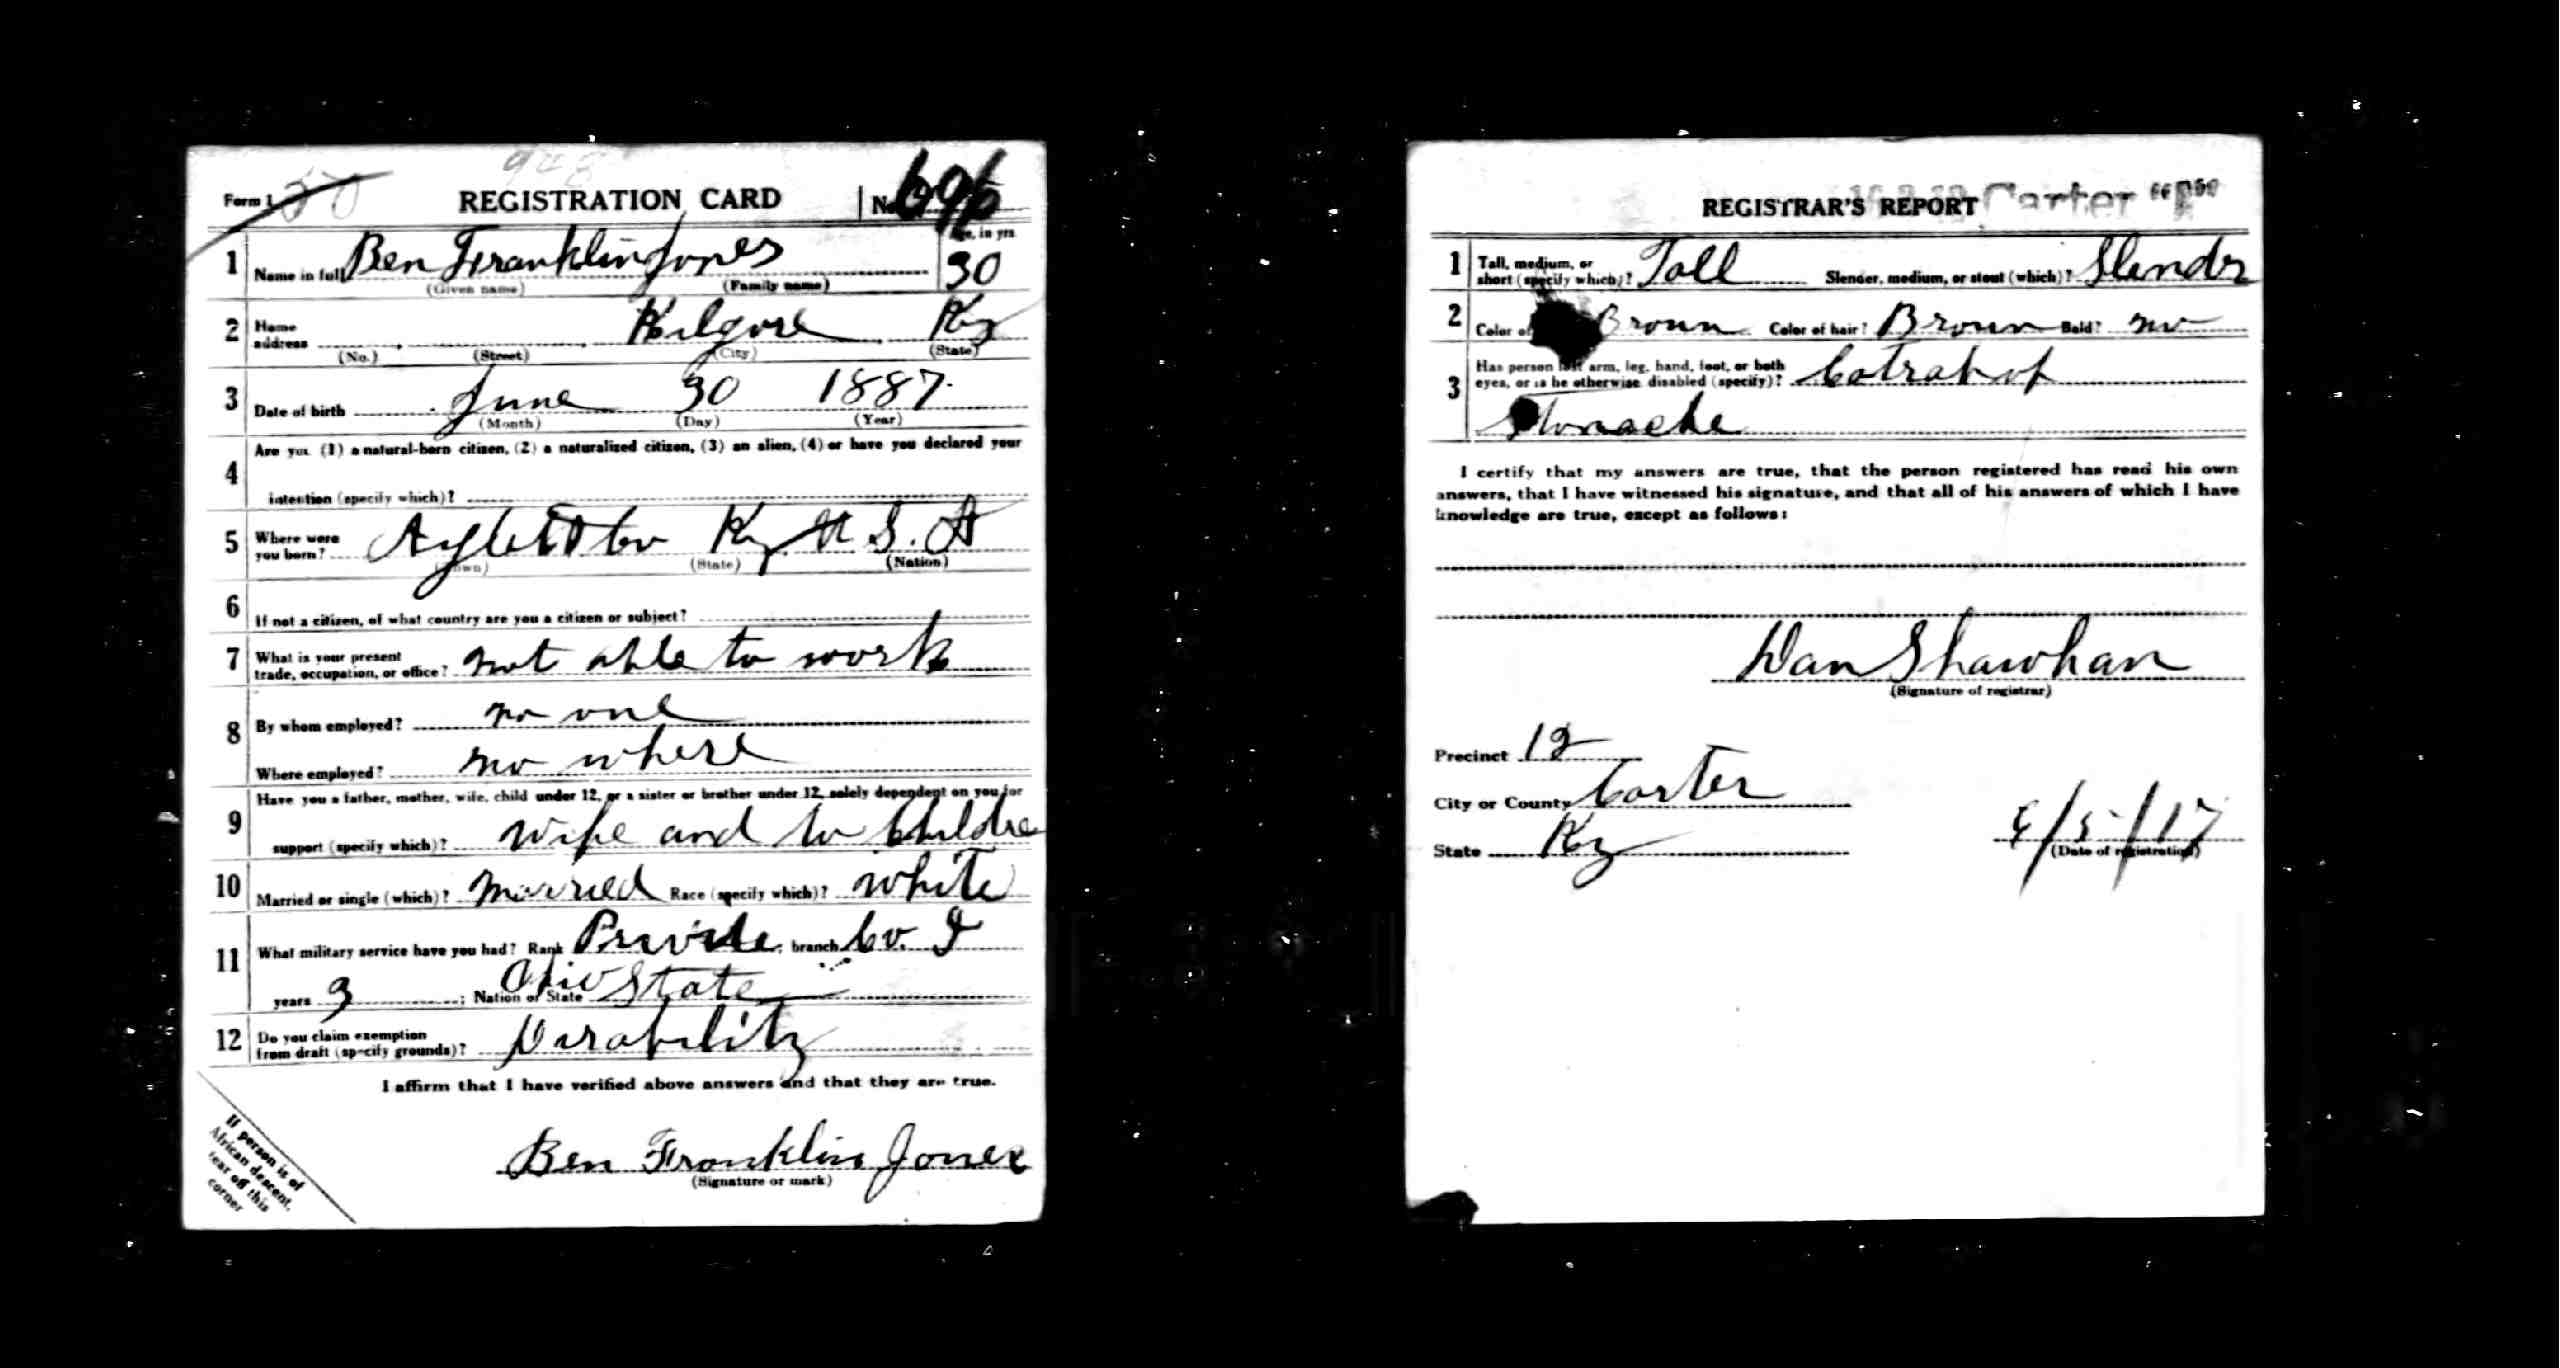 948
Form 1 REGISTRATION CARD No. 696
1 Name in full Ben Franklin Jones Age, in yrs. 30
(Given name) (Family name)
2 Home address Kilgore Ky
(No.) (Street) (City) (State)
3 Date of birth June 30 1887
(Month) (Day) (Year)
4 Are you (1) a natural-born citizen, (2) a naturalized citizen, (3) an alien, (4) or have you declared your
intention (specify which)?
5 Where were you born? Co Ky U S. A
(Town) (State) (Nation)
6 If not a citizen, of what country are you a citizen or subject?
7 What is your present trade, occupation, or office? not able to work
8 By whom employed? no one
Where employed? no where
9 Have you a father, mother, wife, child under 12, or a sister or brother under 12, solely dependent on you for
support (specify which)? wife and to Childre
10 Married or single (which)? Married Race (specify which)? white
11 What military service have you had? Rank Private; branch Co. I
years 3; Nation or State Ohio State
12 Do you claim exemption from draft (specify grounds)? Disability
I affirm that I have verified above answers and that they are true.
Ben Franklin Jones
(Signature or mark)
If person is of
African descent,
tear off this
corner
REGISTRAR'S REPORT Carter
1 Tall, medium, or short (specify which)? Tall Slender, medium, or stout (which)? Slender
2 Color of Broun Color of hair? Broun Bald? no
3 Has person lost arm, leg, hand, foot, or both
eyes, or is he otherwise disabled (specify)? Catrah of
Stomache
I certify that my answers are true, that the person registered has read his own
answers, that I have witnessed his signature, and that all of his answers of which I have
knowledge are true, except as follows:
Dan Shawhan
(Signature of registrar)
Precinct 12
City or County Carter
State Ky 6/5/17
(Date of registration)